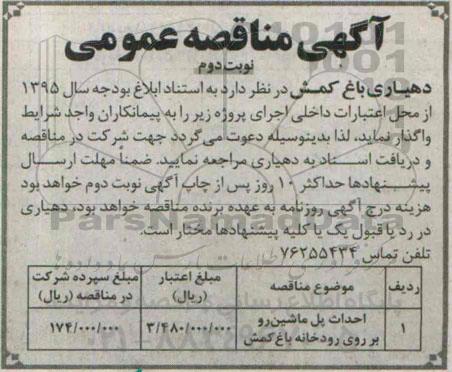 آگهی مناقصه عمومی
نوبت دوم
دهیاری باغ کمش در نظر دارد به استناد ابلاغ بودجه سال ۱۳۹۵
از محل اعتبارات داخلی اجرای پروژه زیر را به پیمانکاران واجد شرایط
واگذار نماید، لذا بدینوسیله دعوت می‌گردد جهت شرکت در مناقصه
و دریافت اسناد به دهیاری مراجعه نمایید. ضمناً مهلت ارسال
پیشنهادها حداکثر ۱۰ روز پس از چاپ آگهی نوبت دوم خواهد بود
هزینه درج آگهی روزنامه به عهده برنده مناقصه خواهد بود، دهیاری
در رد یا قبول یک یا کلیه پیشنهادها مختار است.
تلفن تماس ۷۶۲۵۵۴۳۴
ردیف موضوع مناقصه مبلغ اعتبار (ریال) مبلغ سپرده شرکت در مناقصه (ریال)
۱ احداث پل ماشین‌رو بر روی رودخانه باغ کمش ۳/۴۸۰/۰۰۰/۰۰۰ ۱۷۴/۰۰۰/۰۰۰
ParsNamadData